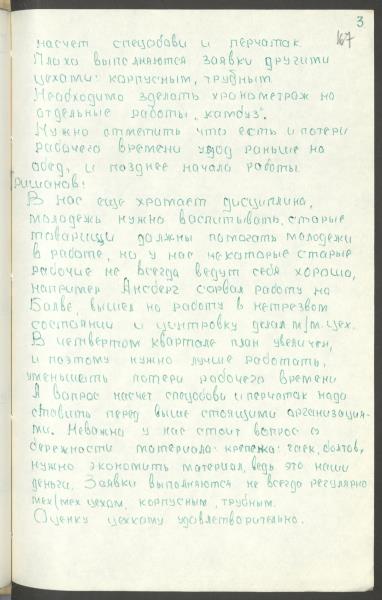 3
167
насчет спецобови и перчаток.
Плохо выполняются заявки другими
цехами: корпусным, трубным.
Необходимо зделать хронометраж на
отдельные работы „камбуз".
Нужно отметить что есть и потери
рабочего времени уход раньше на
обед, и позднее начало работы.
Гришанов:
В нас еще хромает дисциплина,
молодежь нужно воспитывать, старые
товарищи должны помогать молодежи
в работе, но у нас некоторые старые
рабочие не всегда ведут себя хорошо,
например Ансберг сорвал работу на
Балве, вышел на работу в нетрезвом
состоянии и центровку делал м/м. цех.
В четвертом квартале план увеличен,
и поэтому нужно лучше работать,
уменьшать потери рабочего времени
А вопрос насчет спецобови и перчаток надо
ставить перед выше стоящими организация-
ми. Неважно у нас стоит вопрос о
бережности материала: крепежа: гаек, болтов,
нужно экономить материал, ведь это наши
деньги. Заявки выполняются не всегда регулярно
мех/мех цехам, корпусным, трубным.
Оценку цехкому удовлетворительно.